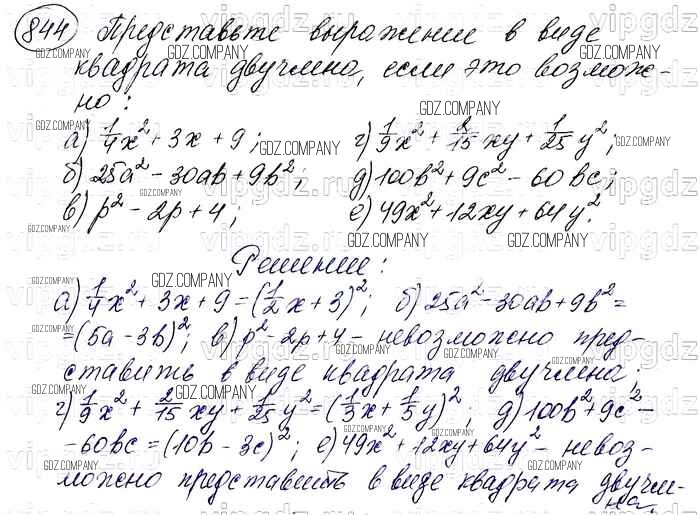 844 Представьте выражение в виде
квадрата двучлена, если это возмож-
но:
а) 1/4x² + 3x + 9; г) 1/9x² + 2/15xy + 1/25y²;
б) 25a² - 30ab + 9b²; д) 100b² + 9c² - 60bc;
в) p² - 2p + 4; е) 49x² + 12xy + 64y².
Решение:
а) 1/4x² + 3x + 9 = (1/2x + 3)²; б) 25a² - 30ab + 9b² =
= (5a - 3b)²; в) p² - 2p + 4 - невозможно пред-
ставить в виде квадрата двучлена;
г) 1/9x² + 2/15xy + 1/25y² = (1/3x + 1/5y)²; д) 100b² + 9c² -
- 60bc = (10b - 3c)²; е) 49x² + 12xy + 64y² - невоз-
можно представить в виде квадрата двучле-
на.
GDZ.COMPANY
vipgdz.ru